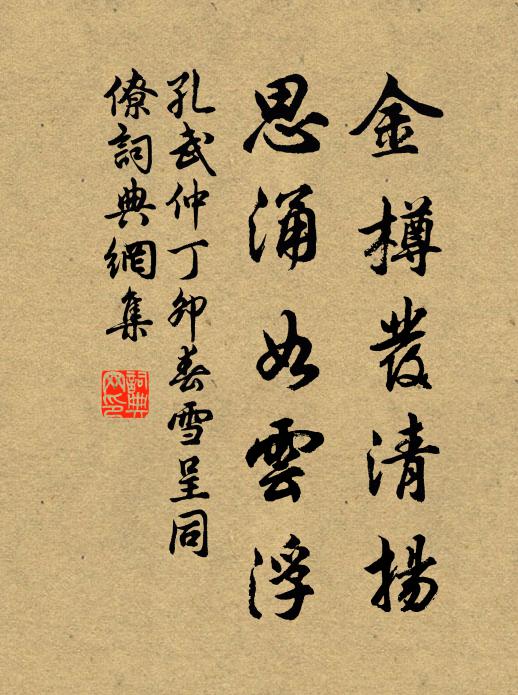 金樽發清揚
思涌如雲浮
孔武仲丁卯春雪呈同
僚詞典網集
詞典